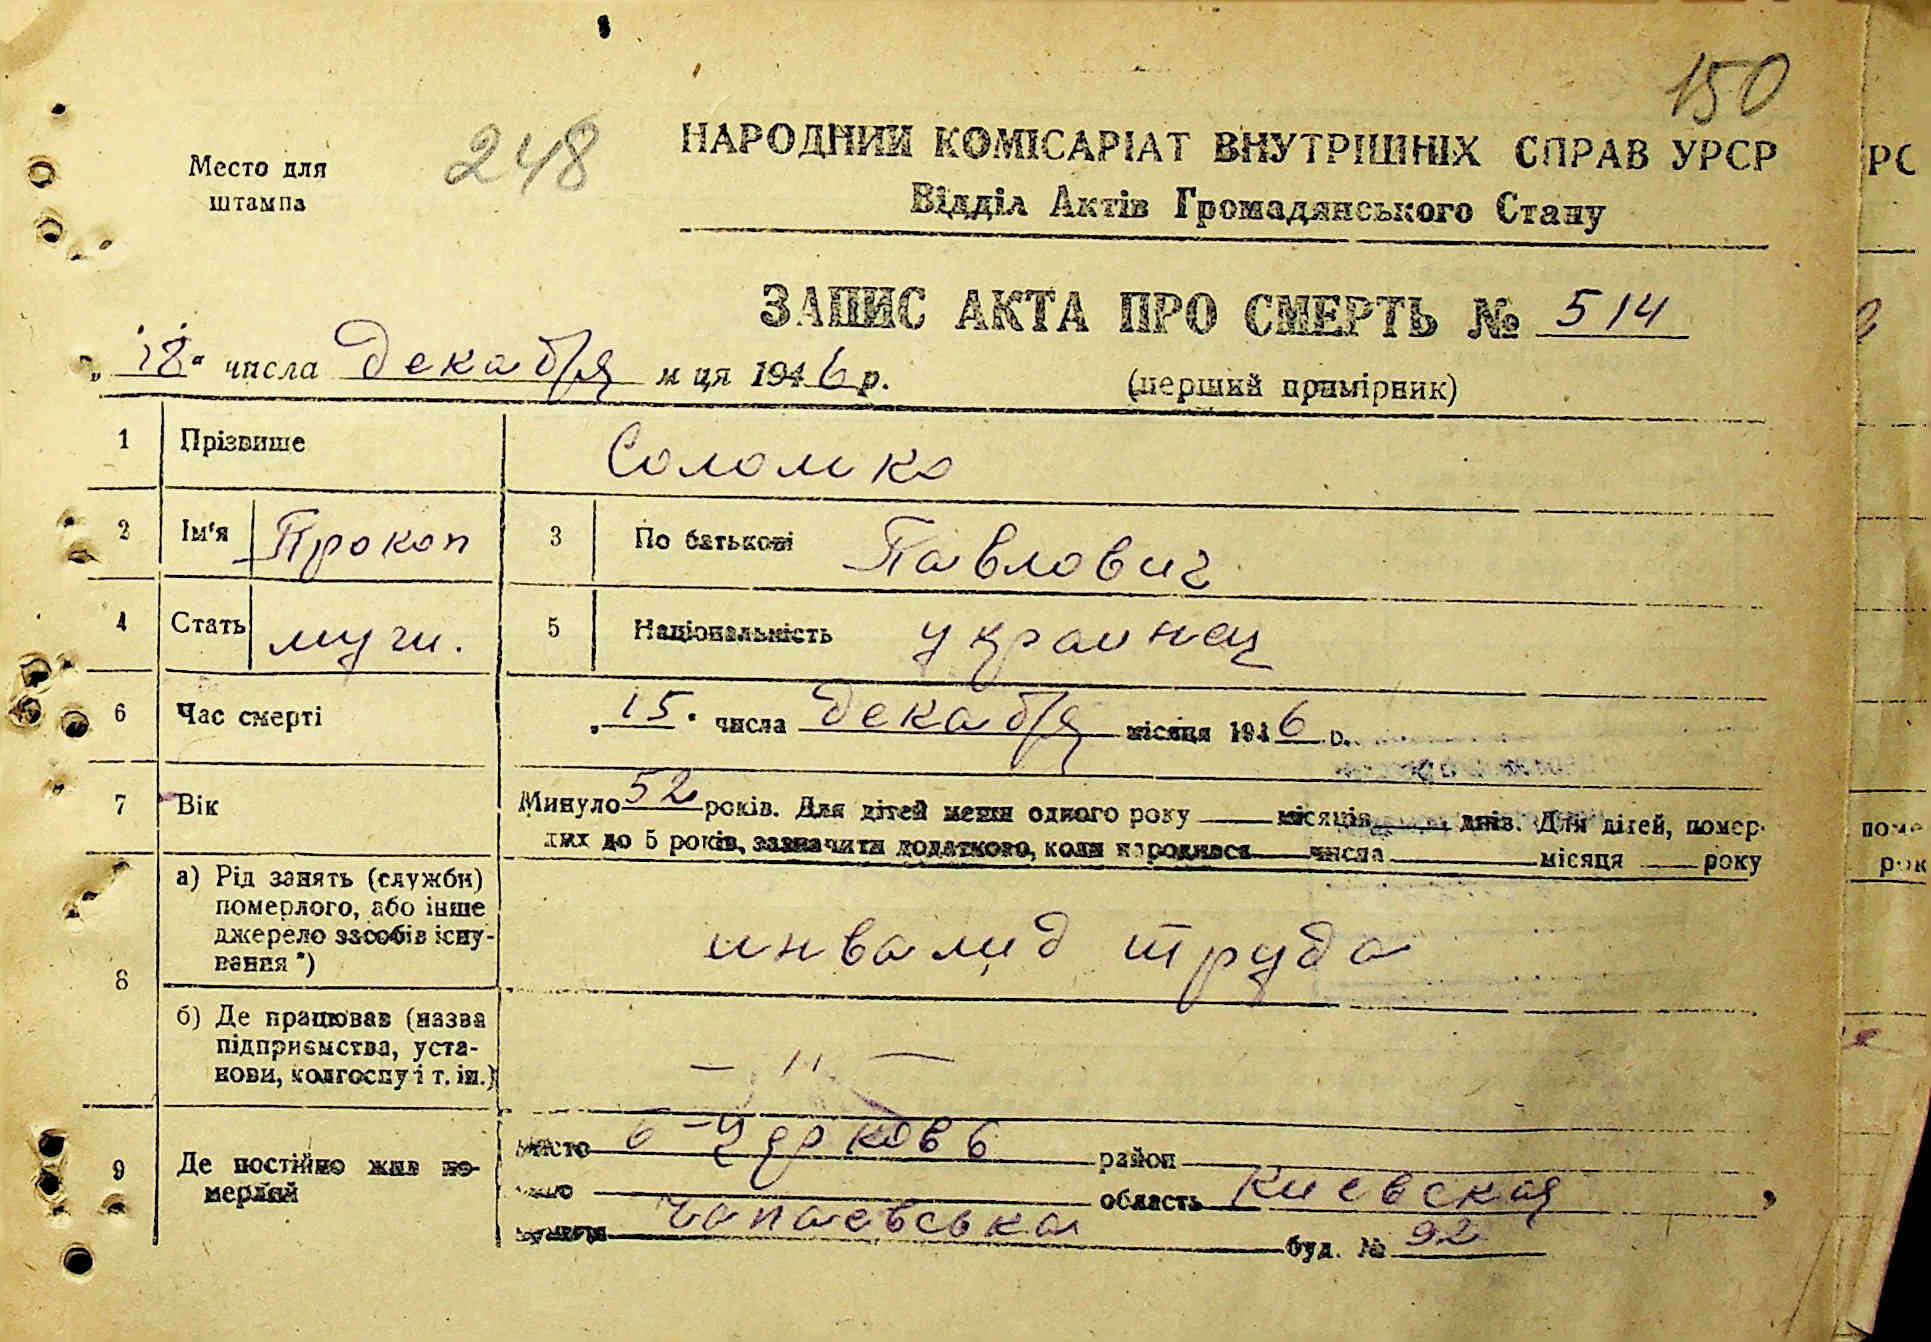 150
248
Место для
штампа
НАРОДНИЙ КОМІСАРІАТ ВНУТРІШНІХ СПРАВ УРСР
Відділ Актів Громадянського Стану
ЗАПИС АКТА ПРО СМЕРТЬ № 514
„18“ числа Декабря м ця 1946 р.
(перший примірник)
1 Прізвище Соломко
2 Ім'я Прокоп 3 По батькові Павлович
4 Стать муж. 5 Національність украинец
6 Час смерті „15“ числа декабря місяця 1946 р.
7 Вік Минуло 52 років. Для дітей менш одного року місяців днів. Для дітей, помер-
лих до 5 років, зазначити додатково, коли народився числа місяця року
8 а) Рід занять (служби)
померлого, або інше
джерело засобів існу-
вання *)
инвалид труда
б) Де працював (назва
підприємства, уста-
нови, колгоспу і т. ін.)
— " —
9 Де постійно жив по-
мерлий
місто Б-Церковь район
область Киевская
Чапаевська буд. № 92
РС
поме
рок